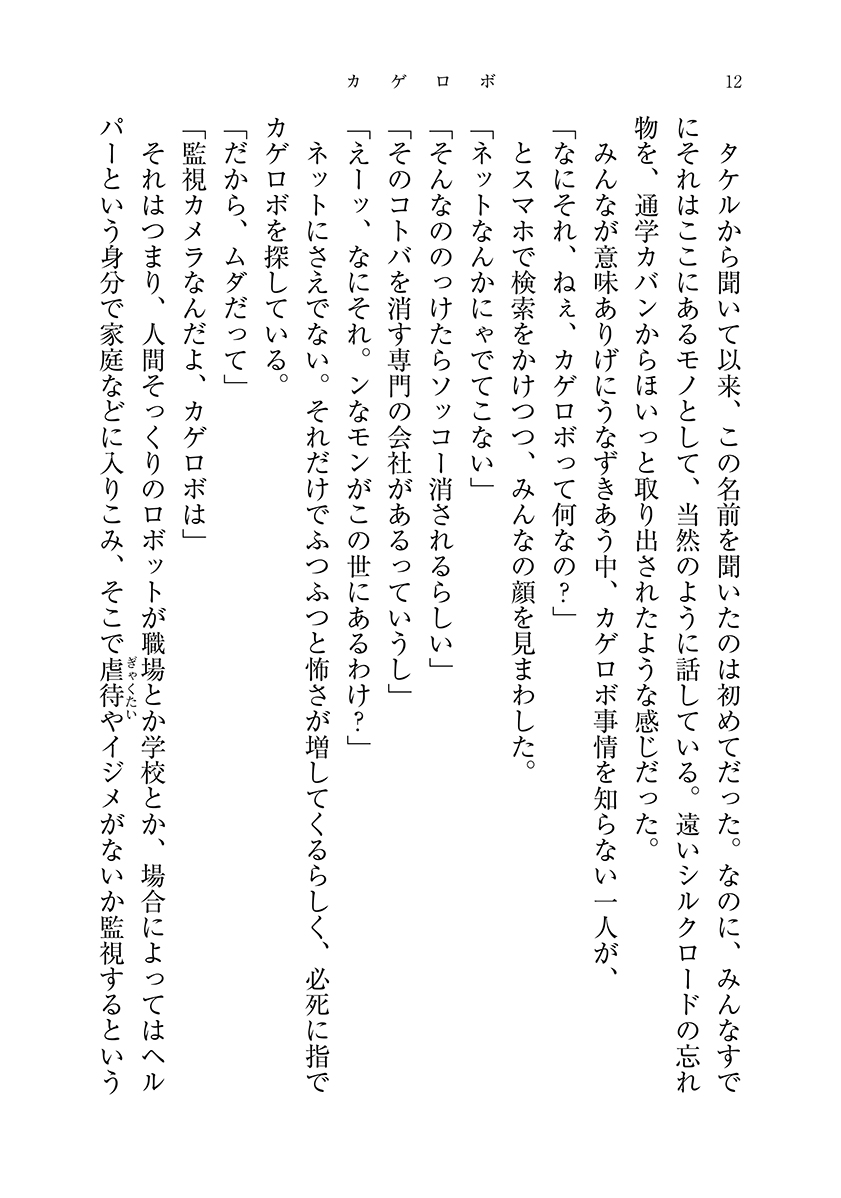 カゲロボ
12
　タケルから聞いて以来、この名前を聞いたのは初めてだった。なのに、みんなすで
にそれはここにあるモノとして、当然のように話している。遠いシルクロードの忘れ
物を、通学カバンからほいっと取り出されたような感じだった。
　みんなが意味ありげにうなずきあう中、カゲロボ事情を知らない一人が、
「なにそれ、ねぇ、カゲロボって何なの？」
　とスマホで検索をかけつつ、みんなの顔を見まわした。
「ネットなんかにゃでてこない」
「そんなののっけたらソッコー消されるらしい」
「そのコトバを消す専門の会社があるっていうし」
「えーッ、なにそれ。ンなモンがこの世にあるわけ？」
　ネットにさえでない。それだけでふつふつと怖さが増してくるらしく、必死に指で
カゲロボを探している。
「だから、ムダだって」
「監視カメラなんだよ、カゲロボは」
　それはつまり、人間そっくりのロボットが職場とか学校とか、場合によってはヘル
パーという身分で家庭などに入りこみ、そこで虐待やイジメがないか監視するという
ぎゃくたい